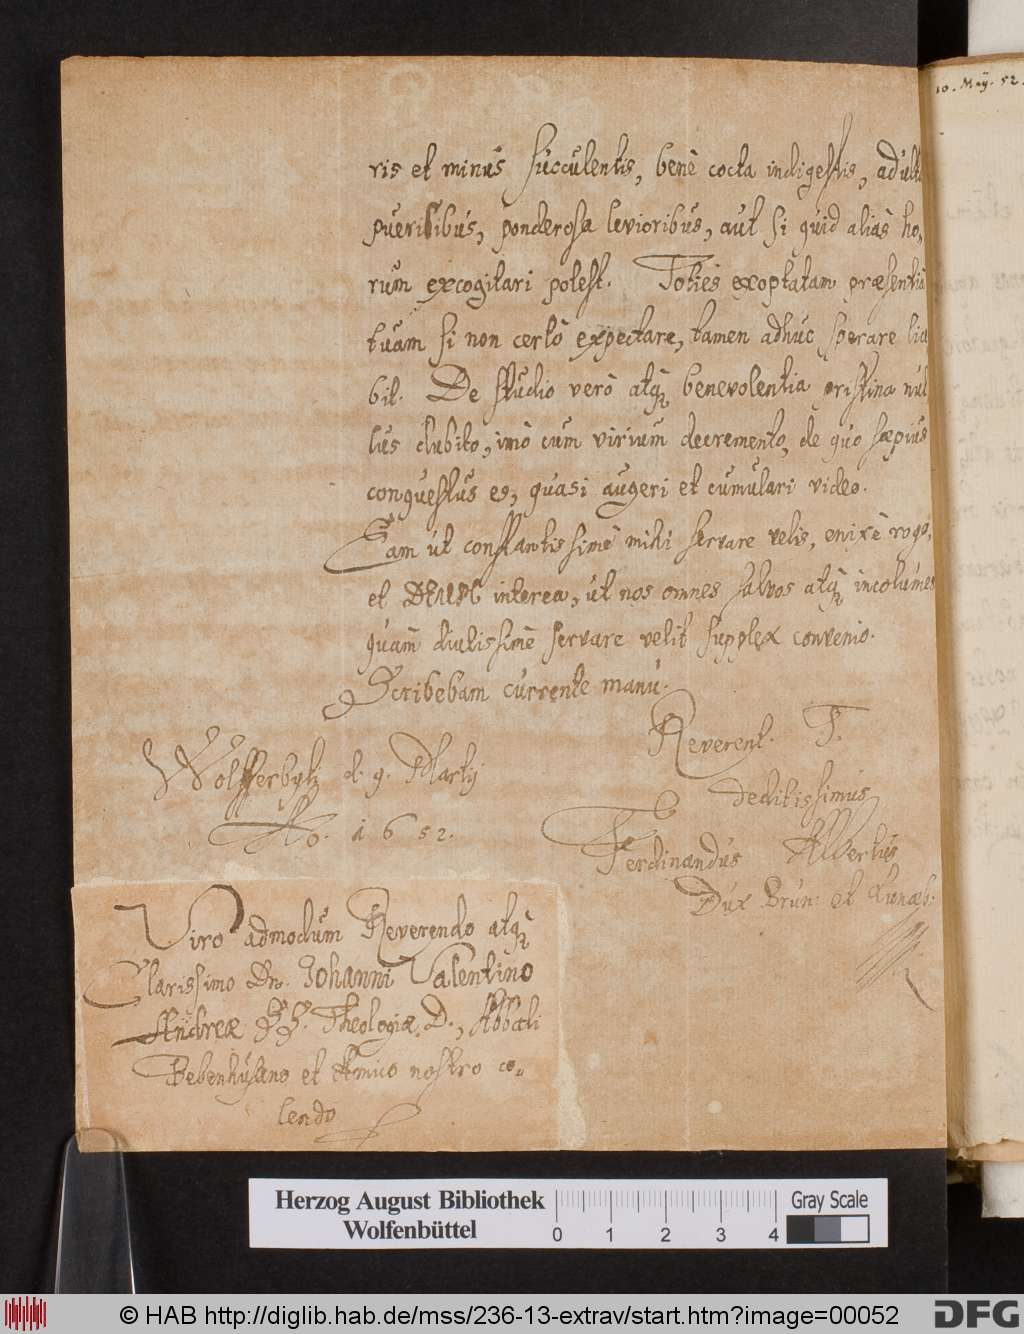 10. Maÿ. 52.
ris et minus succulentis, benè cocta indigestis, adulta
puerilibus, ponderosa levioribus, aut si quid aliàs ho,
rum excogitari potest. Toties exoptatam præsentia
tuam si non certò expectare, tamen adhuc sperare lice
bit. De studio verò atq benevolentia pristina nul
lus dubito, imò cum virium decremento, de quo sæpius
conquestus es, quasi augeri et cumulari video.
Eam út constantissimè mihi servare velis, enixè rogo,
et DEUM interea, út nos omnes salvos atq incolumes
quàm diutissimè servare velit supplex convenio.
Scribebam currente manu.
Reverent. T.
Wolfferbytz d. 9. Martij
deditissimus
Ao. 1652.
Ferdinandus Albertus
Dux Brun: et Lunæb:
Viro admodum Reverendo atq
Clarissimo Dn. Johanni Valentino
Andreæ SS. Theologiæ D., Abbati
Bebenhusano et Amico nostro co=
lendo
Herzog August Bibliothek
Wolfenbüttel
0 1 2 3 4
Gray Scale
© HAB http://diglib.hab.de/mss/236-13-extrav/start.htm?image=00052
DFG